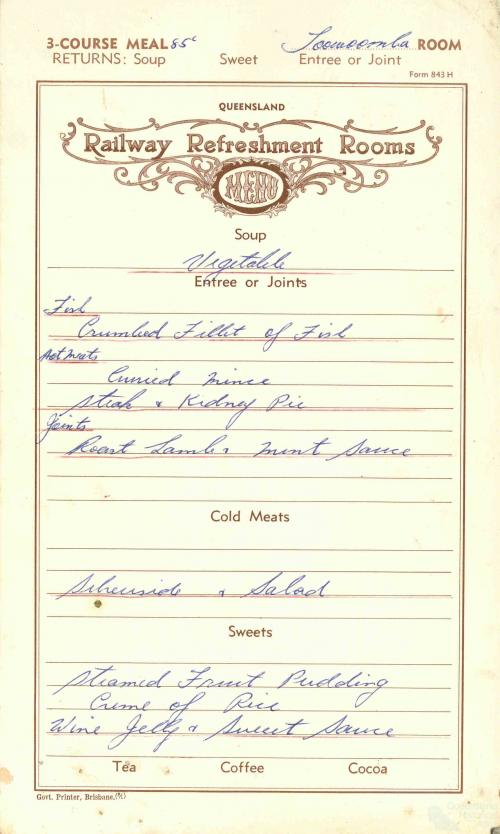 3-COURSE MEAL 85c Toowoomba ROOM
RETURNS: Soup Sweet Entree or Joint
Form 843 H
QUEENSLAND
Railway Refreshment Rooms
MENU
Soup
Vegetable
Entree or Joints
Fish
Crumbed Fillet of Fish
Hot Meats
Curried Mince
Steak & Kidney Pie
Joints
Roast Lamb & Mint Sauce
Cold Meats
Silverside & Salad
Sweets
Steamed Fruit Pudding
Creme of Rice
Wine Jelly & Sweet Sauce
Tea Coffee Cocoa
Govt. Printer, Brisbane.